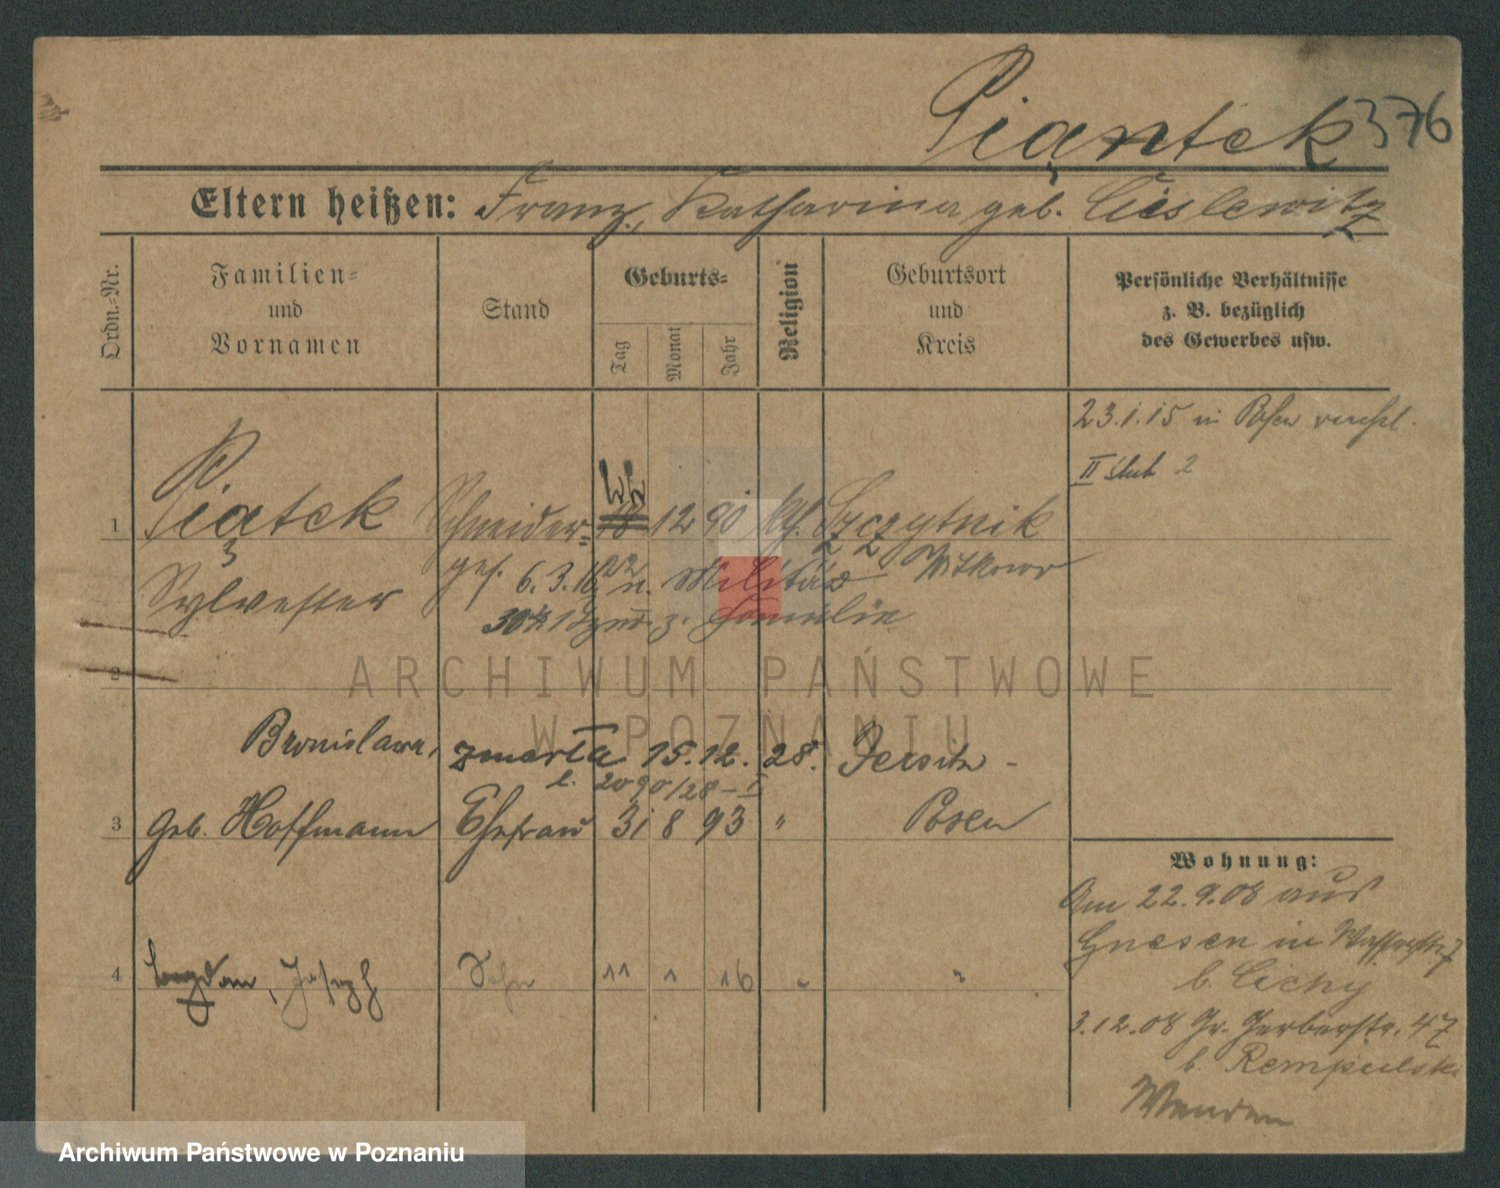 Piątek 376
Eltern heißen: Franz, Katharina geb. Cieslewitz
Ordn.-Nr.
Familien-
und
Vornamen
Stand
Geburts-
Tag
Monat
Jahr
Religion
Geburtsort
und
Kreis
Persönliche Verhältnisse
z. B. bezüglich
des Gewerbes usw.
23.1.15 in Posen verehel.
II
1 Piątek Schneider 18 12 90 kth. Szczytnik
ges. 6.3.16 22 n. Militär Witkowo
Sylvester
z. Familie
2
ARCHIWUM PAŃSTWOWE
W POZNANIU
Bronislawa, zmarła 15.12.28. Jersitz -
l. 2090/28 - I
3 geb. Hoffmann Ehefrau 31 8 93 " Posen
Wohnung:
Am 22.9.08 aus
Gnesen in Wasserstr. 7
b. Cichy
4 Bogdan, Joseph Sohn 11 1 16 " "
3.12.08 Gr. Gerberstr. 47
b. Rempulski
Wenden
Archiwum Państwowe w Poznaniu